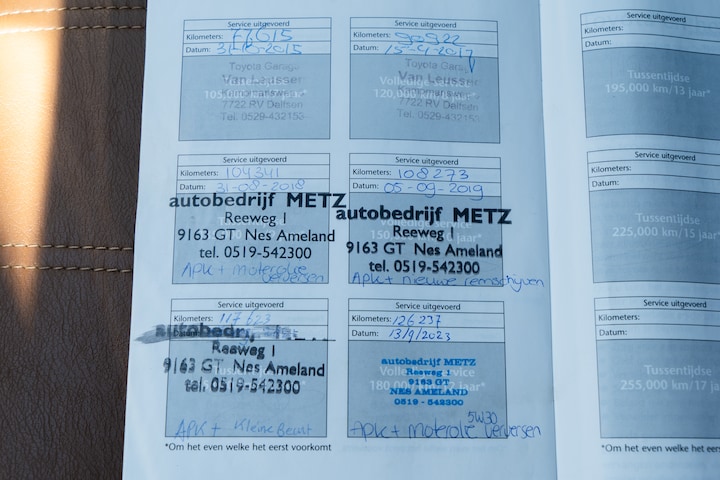 Service uitgevoerd
Kilometers: 77615
Datum: 31-8-2015
Toyota Garage
Van Leussen
7722 RV Dalfsen
Tel. 0529-432153
Service uitgevoerd
Kilometers: 90922
Datum: 15-4-2017
Toyota Garage
Van Leussen
Volledige service
120,000 km/
7722 RV Dalfsen
Tel. 0529-432153
Service uitgevoerd
Kilometers: 104341
Datum: 31-08-2018
autobedrijf METZ
Reeweg 1
9163 GT Nes Ameland
tel. 0519-542300
APK + moterolie
verversen
Service uitgevoerd
Kilometers: 108273
Datum: 05-09-2019
autobedrijf METZ
Reeweg 1
9163 GT Nes Ameland
tel. 0519-542300
APK + nieuwe remschijven
Service uitgevoerd
Kilometers:
autobedrij
Reeweg 1
9163 GT Nes Ameland
tel. 0519-542300
APK + Kleine Beurt
Service uitgevoerd
Kilometers: 126 237
Datum: 13/9/2023
Volledige service
180,000 km/12 jaar*
autobedrijf METZ
Reeweg 1
9163 GT
NES AMELAND
0519 - 542300
5W30
APK + Moterolie Verversen
*Om het even welke het eerst voorkomt
Service uitgevoerd
Kilometers:
Datum:
Tussentijdse
195,000 km/13 jaar*
Service uitgevoerd
Kilometers:
Datum:
Tussentijdse
225,000 km/15 jaar*
Service uitgevoerd
Kilometers:
Datum:
Tussentijdse
255,000 km/17 ja
*Om het even welke het eers